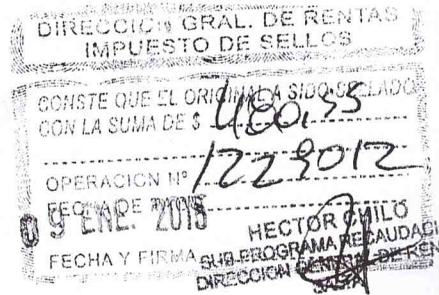 DIRECCION GRAL. DE RENTAS
IMPUESTO DE SELLOS
CONSTE QUE EL ORIGINAL A SIDO SELLADO
CON LA SUMA DE $ 480,35
OPERACION Nº 1229012
FECHA DE
09 ENE. 2015
FECHA Y FIRMA
HECTOR CHILO
SUB-PROGRAMA RECAUDACI
DIRECCION GENERAL DE REN
SALTA